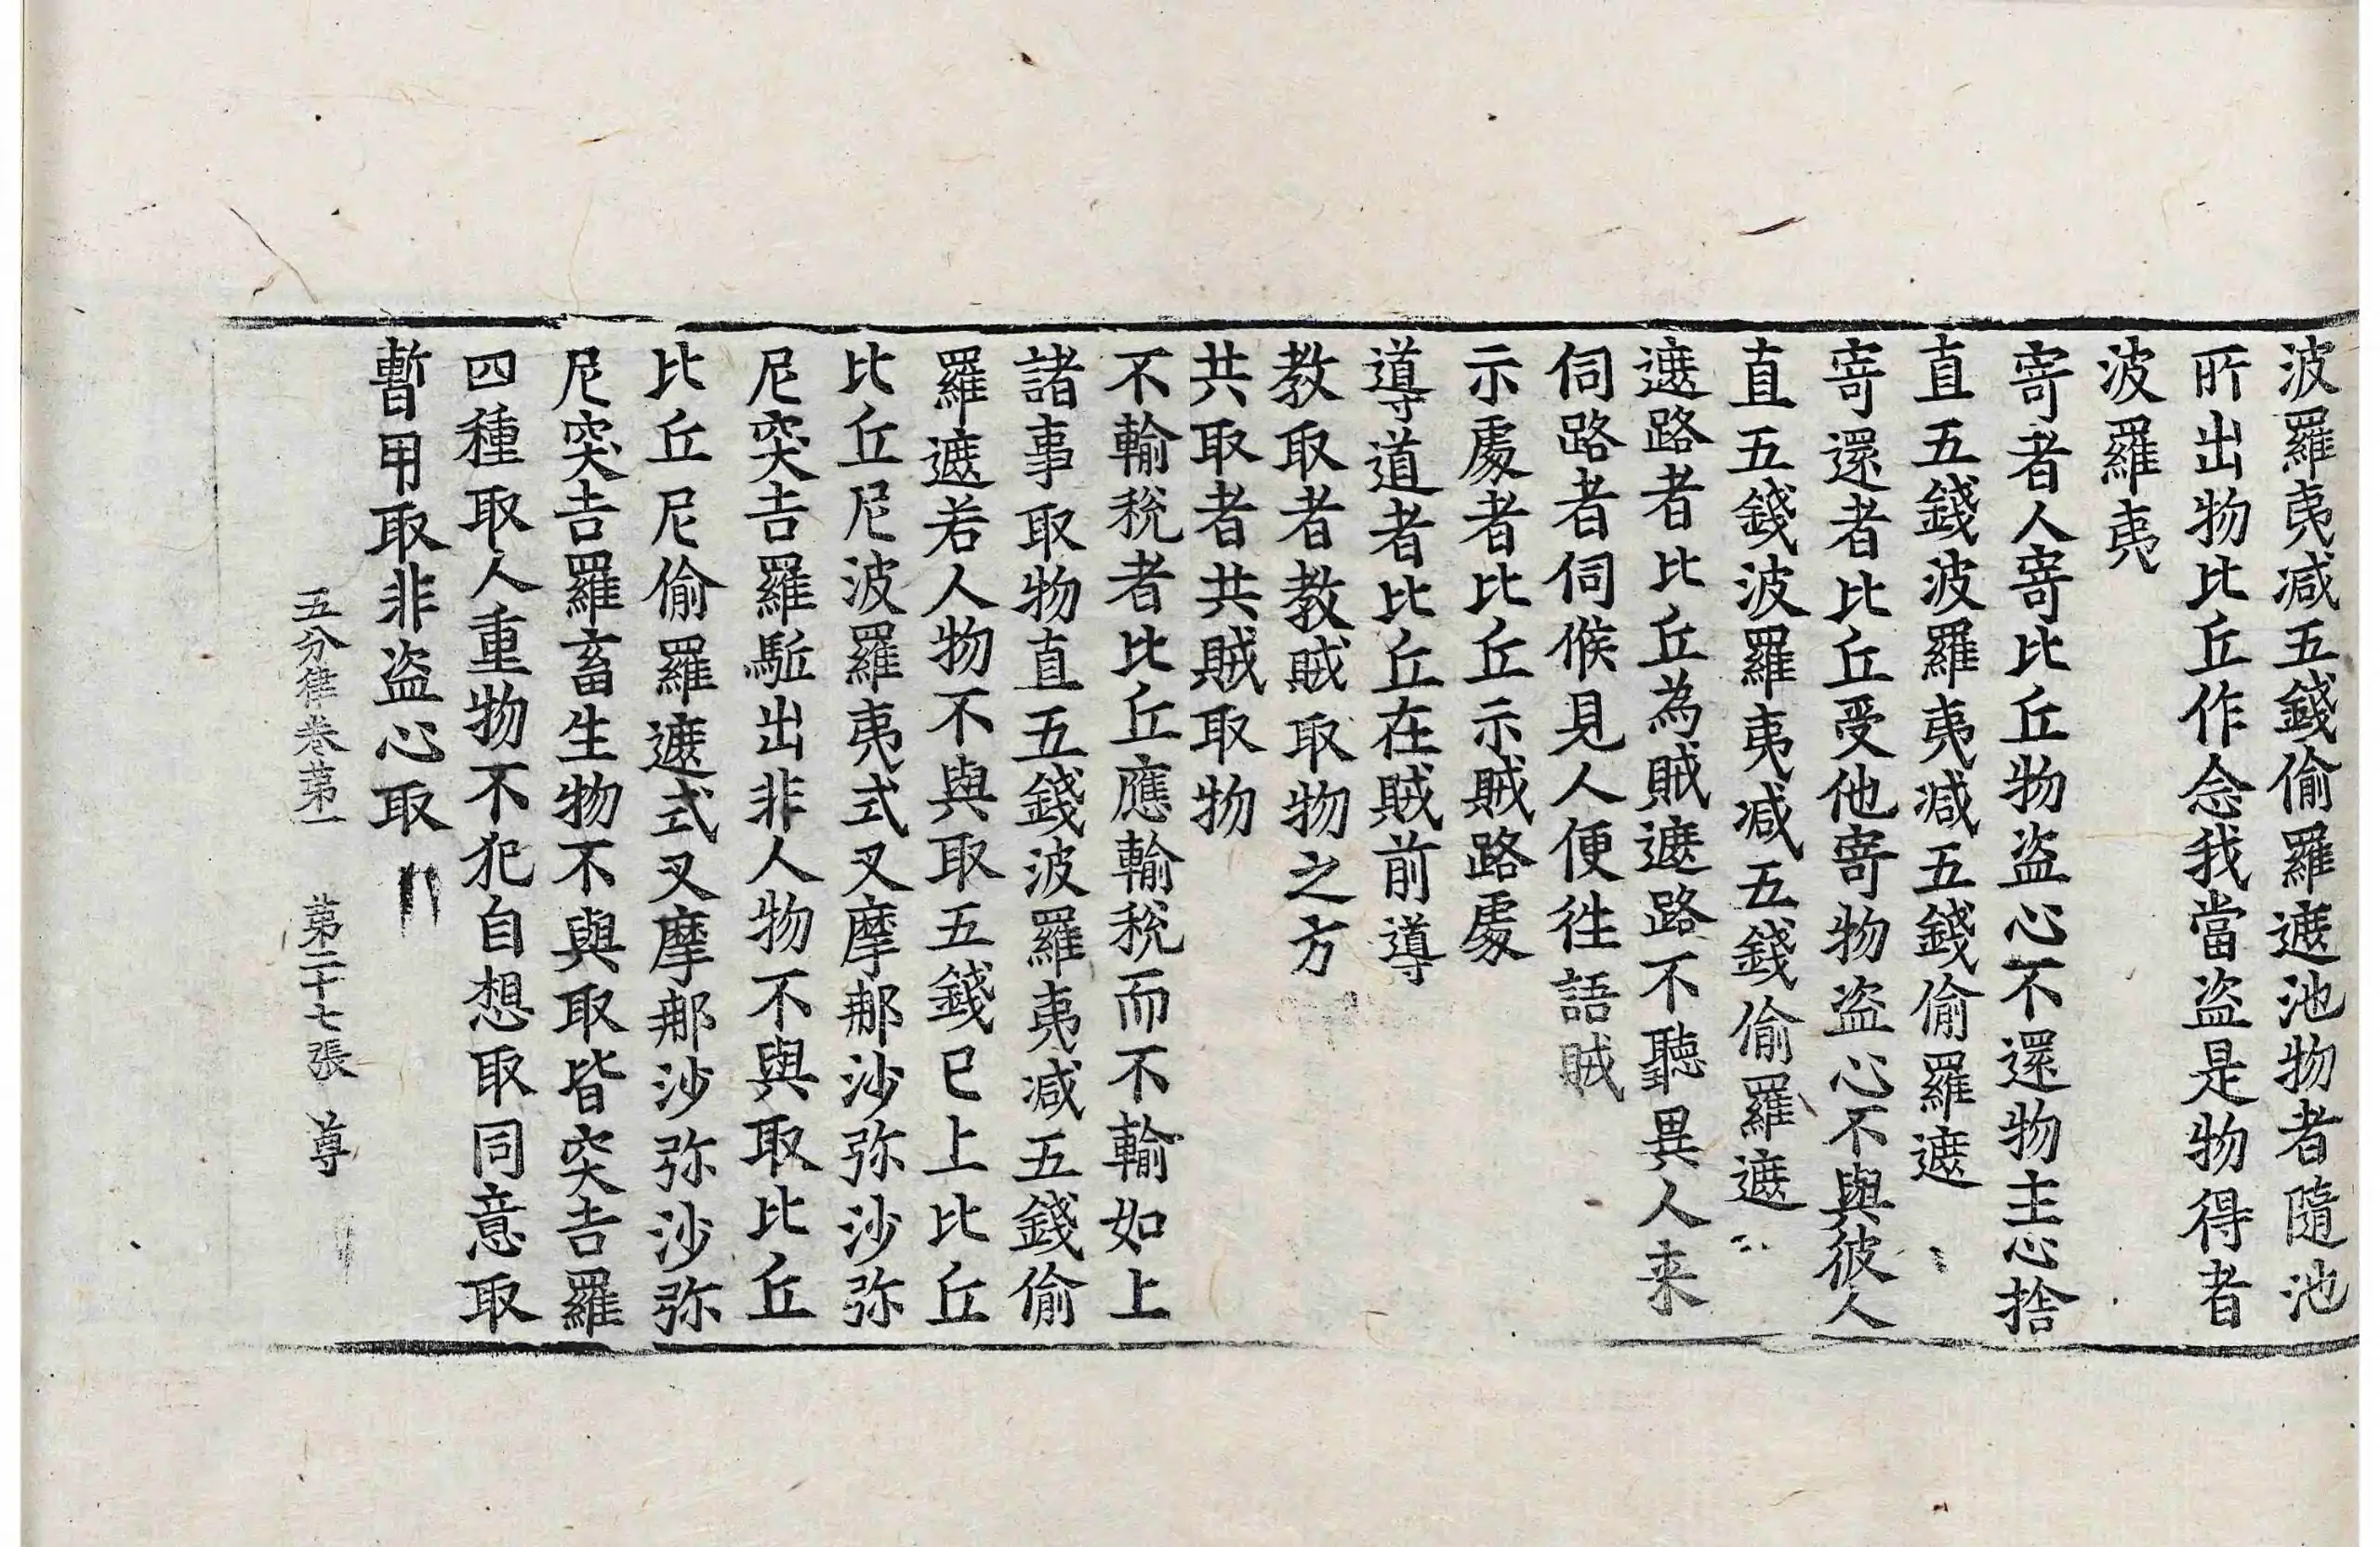 波羅夷減五錢偷羅遮池物者隨池
所出物比丘作念我當盜是物得者
波羅夷
寄者人寄比丘物盜心不還物主心捨
直五錢波羅夷減五錢偷羅遮
寄還者比丘受他寄物盜心不與彼人
直五錢波羅夷減五錢偷羅遮
遮路者比丘為賊遮路不聽異人来
伺路者伺候見人便往語賊
示處者比丘示賊路處
導道者比丘在賊前導
教取者教賊取物之方
共取者共賊取物
不輸稅者比丘應輸稅而不輸如上
諸事取物直五錢波羅夷減五錢偷
羅遮若人物不與取五錢已上比丘
比丘尼波羅夷式叉摩那沙弥沙弥
尼突吉羅駈出非人物不與取比丘
比丘尼偷羅遮式叉摩那沙弥沙弥
尼突吉羅畜生物不與取皆突吉羅
四種取人重物不犯自想取同意取
暫用取非盜心取
五分律卷第一 第二十七張 尊